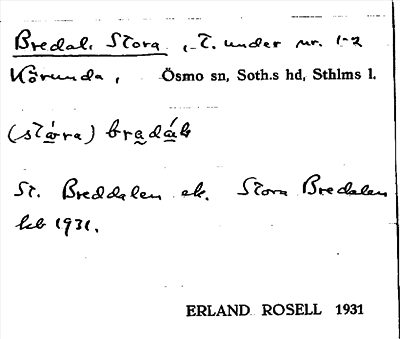 Bredal, Stora, T. under nr. 1-2
Körunda, Ösmo sn, Soth.s hd, Sthlms l.
(stóra) bradáḷ
St. Breddalen ek. Stora Bredalen
kb 1931.
ERLAND ROSELL 1931